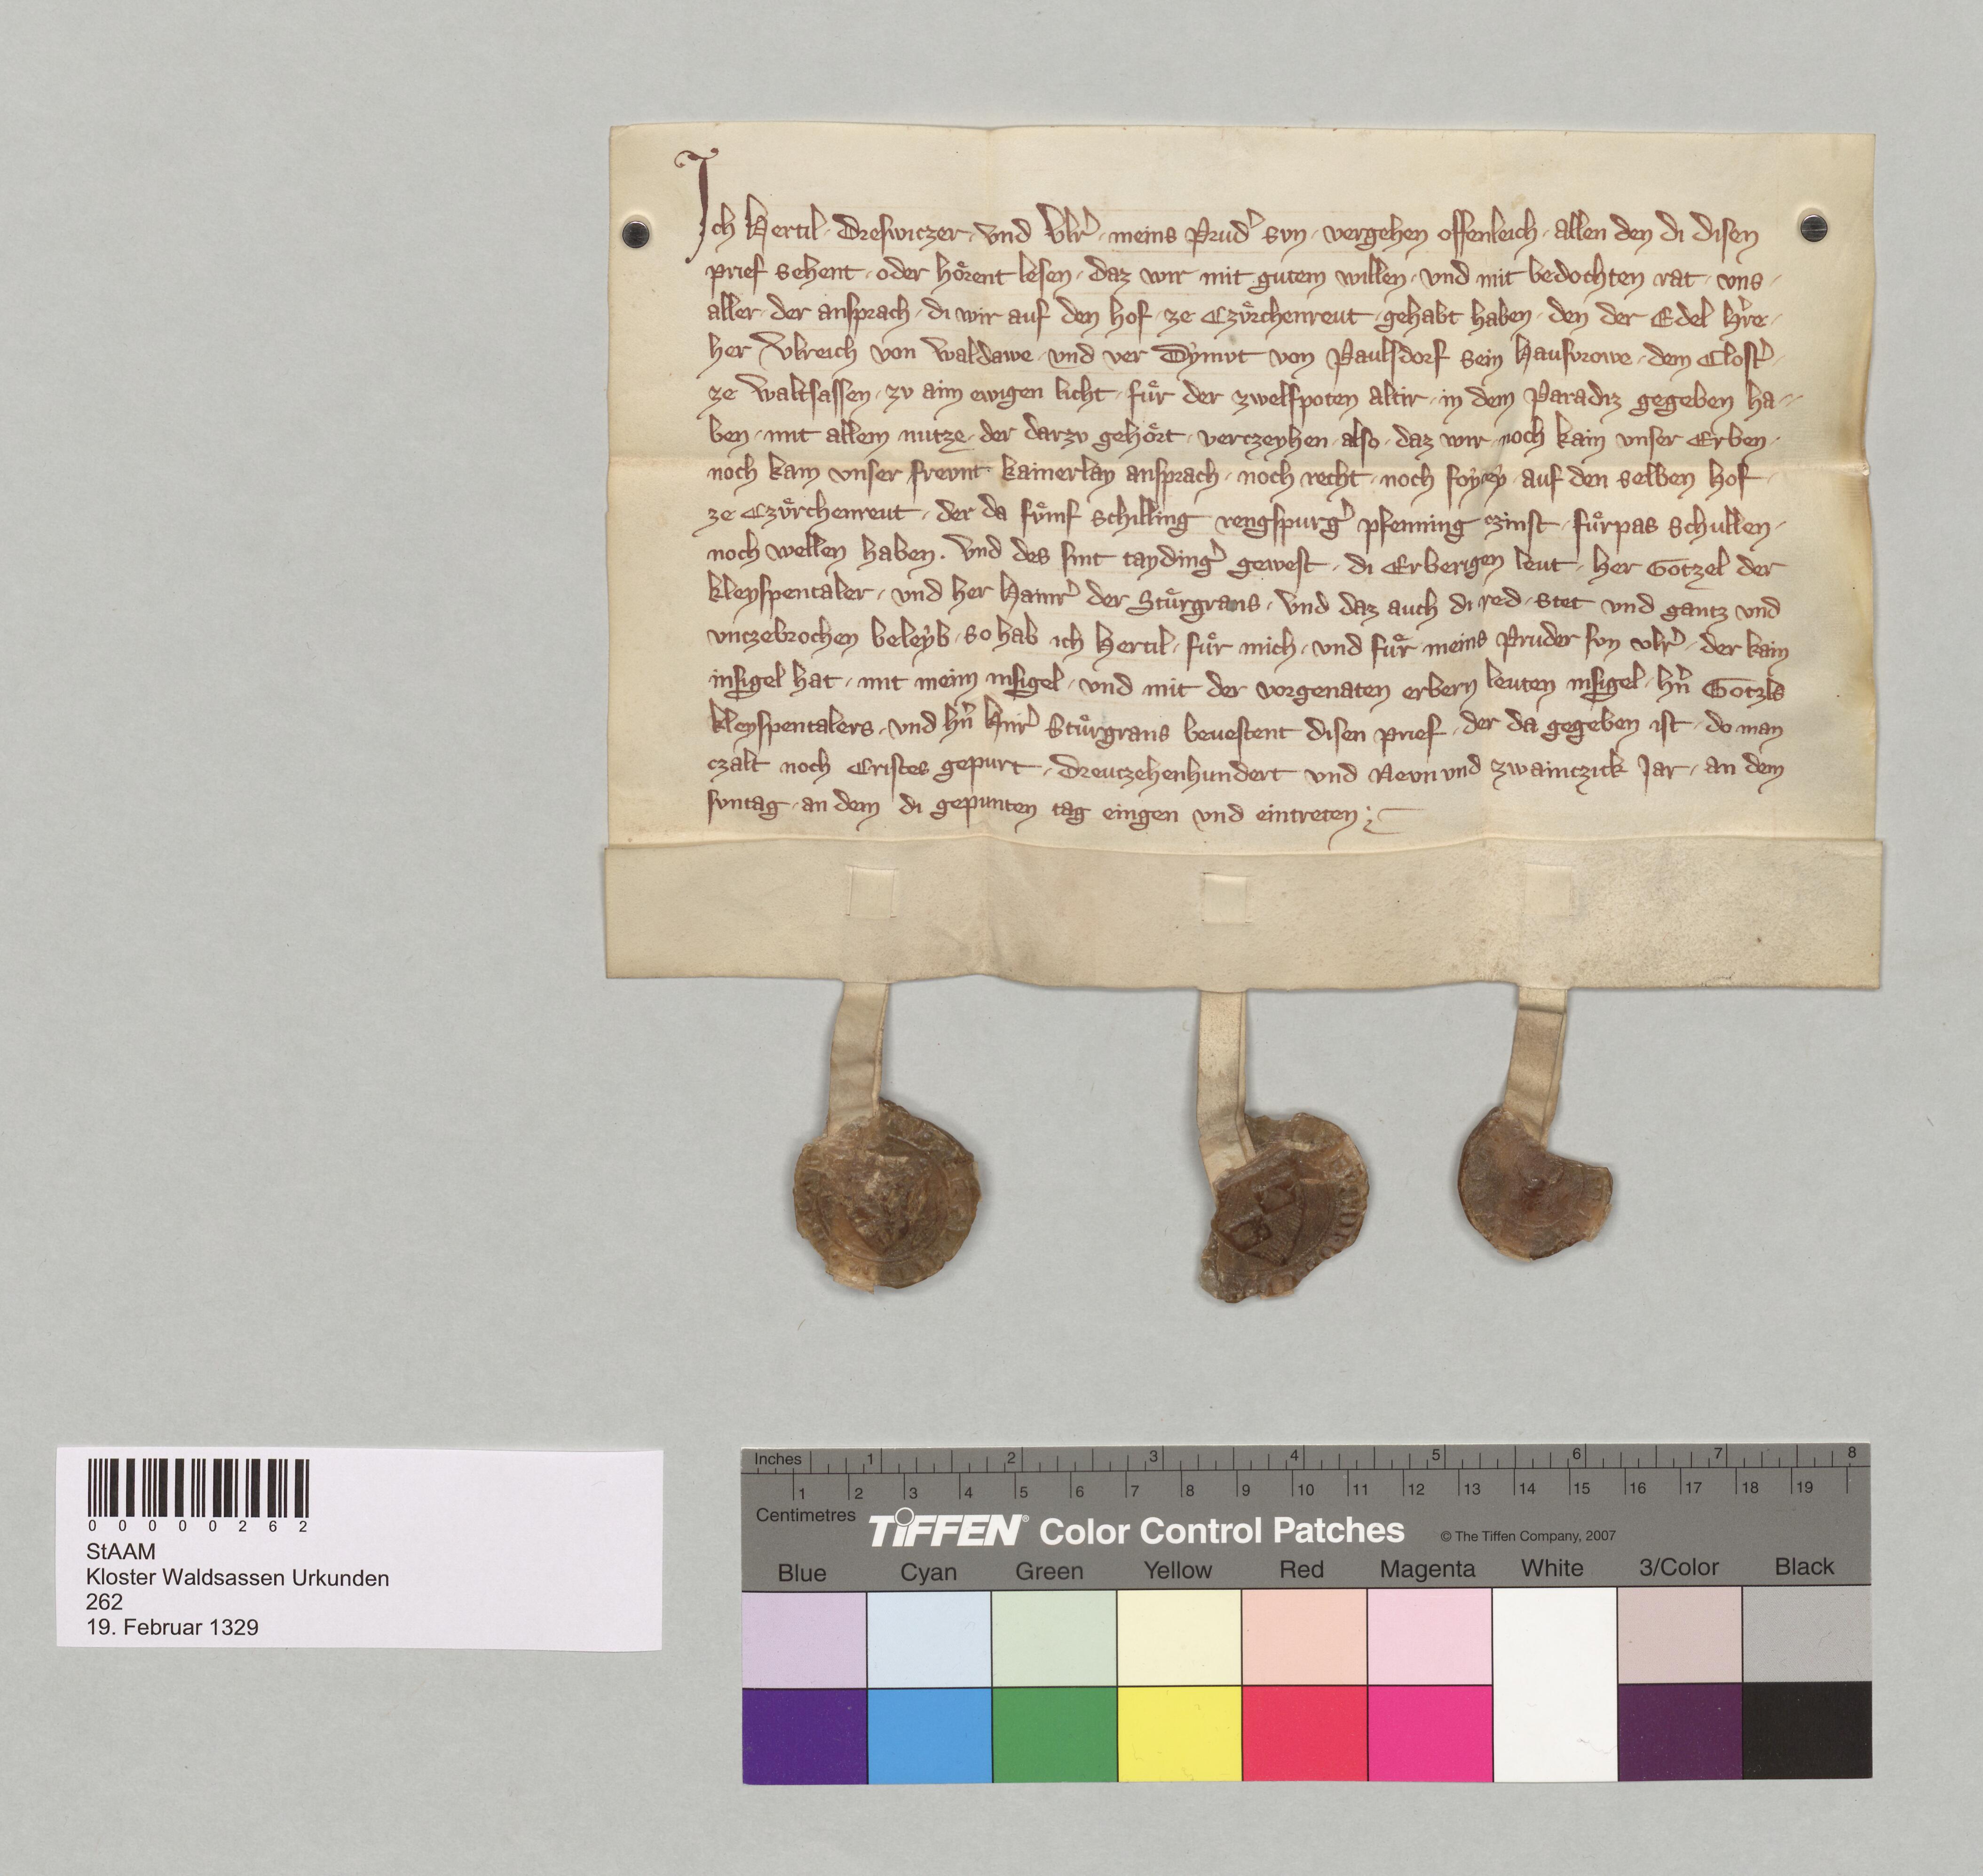 Ich Hertil · Dreswiczer · vnd Vlr̉ · meins Prud̉ svn · vergehen offenleich · allen den di disen
prief sehent · oder hoͤrent lesen · daz wir mit gutem willen · vnd mit bedochten rat · vns ·
aller · der ansprach · di wir auf den hof · ze Czvͤrchenreut · gehabt haben · den der Edel h̉re ·
her Vlreich von Waldawe · vnd ver Dẏmvt von Paulsdorf sein Hausvrowe · dem Clost̉ ·
ze Waltsassen · zv aim ewigen licht · fuͤr der zwelfpoten altir · in dem Paradiz gegeben ha-
ben · mit allem nutze · der darzv gehoͤrt · verczeyhen · also · daz wir · noch kain vnser Erben ·
noch kain vnser frevnt · kainerlay ansprach · noch recht · noch foẏtẏ · auf den selben hof ·
ze Czvͤrchenreut · der da fvͤmf schilling rengspurg̉ pfenning czinst · fuͤrpas schullen ·
noch wellen haben . Vnd des sint tayding̉ gewest · di Erberigen leut · her Gotzel der
kleyspentaler · vnd her Hainr̉ der Stuͤrgrans · Vnd daz auch di red · stet vnd gantz vnd
vnczebrochen beleẏb · so hab ich Hertil · fuͤr mich · vnd fuͤr meins Pruder svn vlr̉ · der kain
insigel hat · mit meim insigel · vnd mit der vorgenaten erbern leuten insigel · hn̉ Gotzls
kleyspentalers · vnd hn̉ Hnr̉ Stuͤrgrans bevestent disen prief · der da gegeben ist · do man
czalt noch Cristes gepurt · dreutzehenhundert vnd Nevn vnd zwainczick Jar · an dem
svntag · an dem di gepunten tag eingen vnd eintreten ;
0 0 0 0 0 2 6 2
StAAM
Kloster Waldsassen Urkunden
262
19. Februar 1329
Inches 1 2 3 4 5 6 7 8
1 2 3 4 5 6 7 8 9 10 11 12 13 14 15 16 17 18 19
Centimetres
TIFFEN® Color Control Patches © The Tiffen Company, 2007
Blue Cyan Green Yellow Red Magenta White 3/Color Black